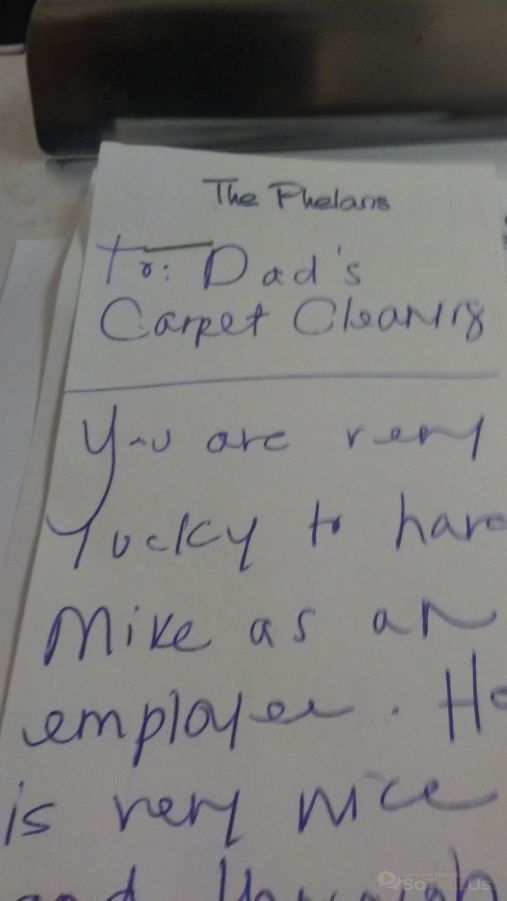 The Phelans
To: Dad's
Carpet Cleaning
You are very
lucky to have
Mike as an
employer. He
is very nice
and through
SoTellUs